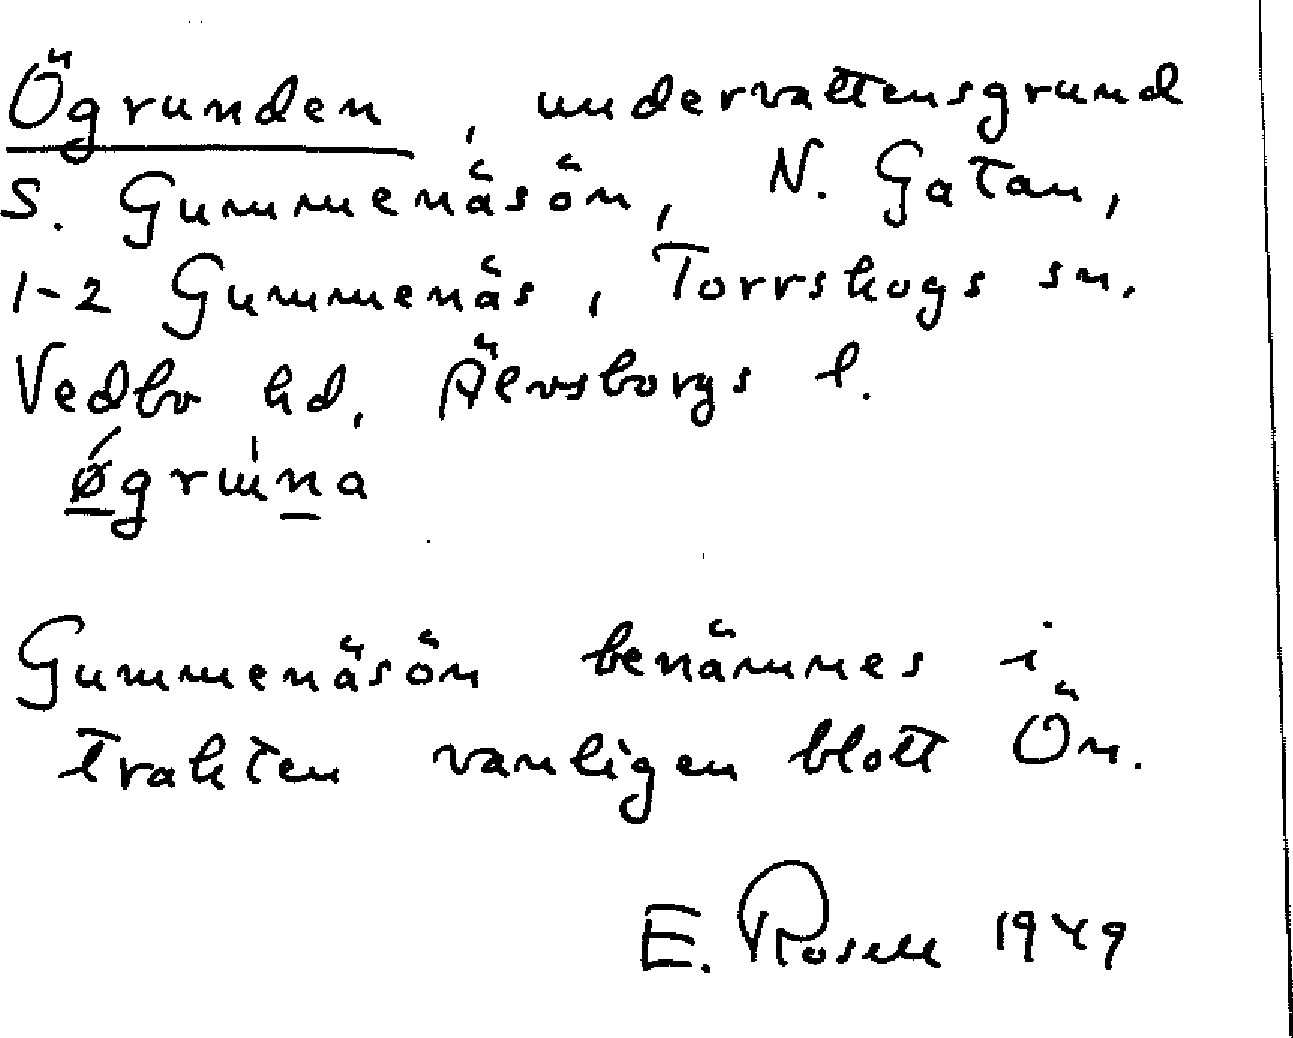 Ögrunden, undervattensgrund
S. Gummenäsön, N. Gatan,
1-2 Gummenäs, Torrskogs sn.
Vedbo hd, Älvsborgs l.
Gummenäsön benämnes i
trakten vanligen blott Ön.
E. Rosell 1949